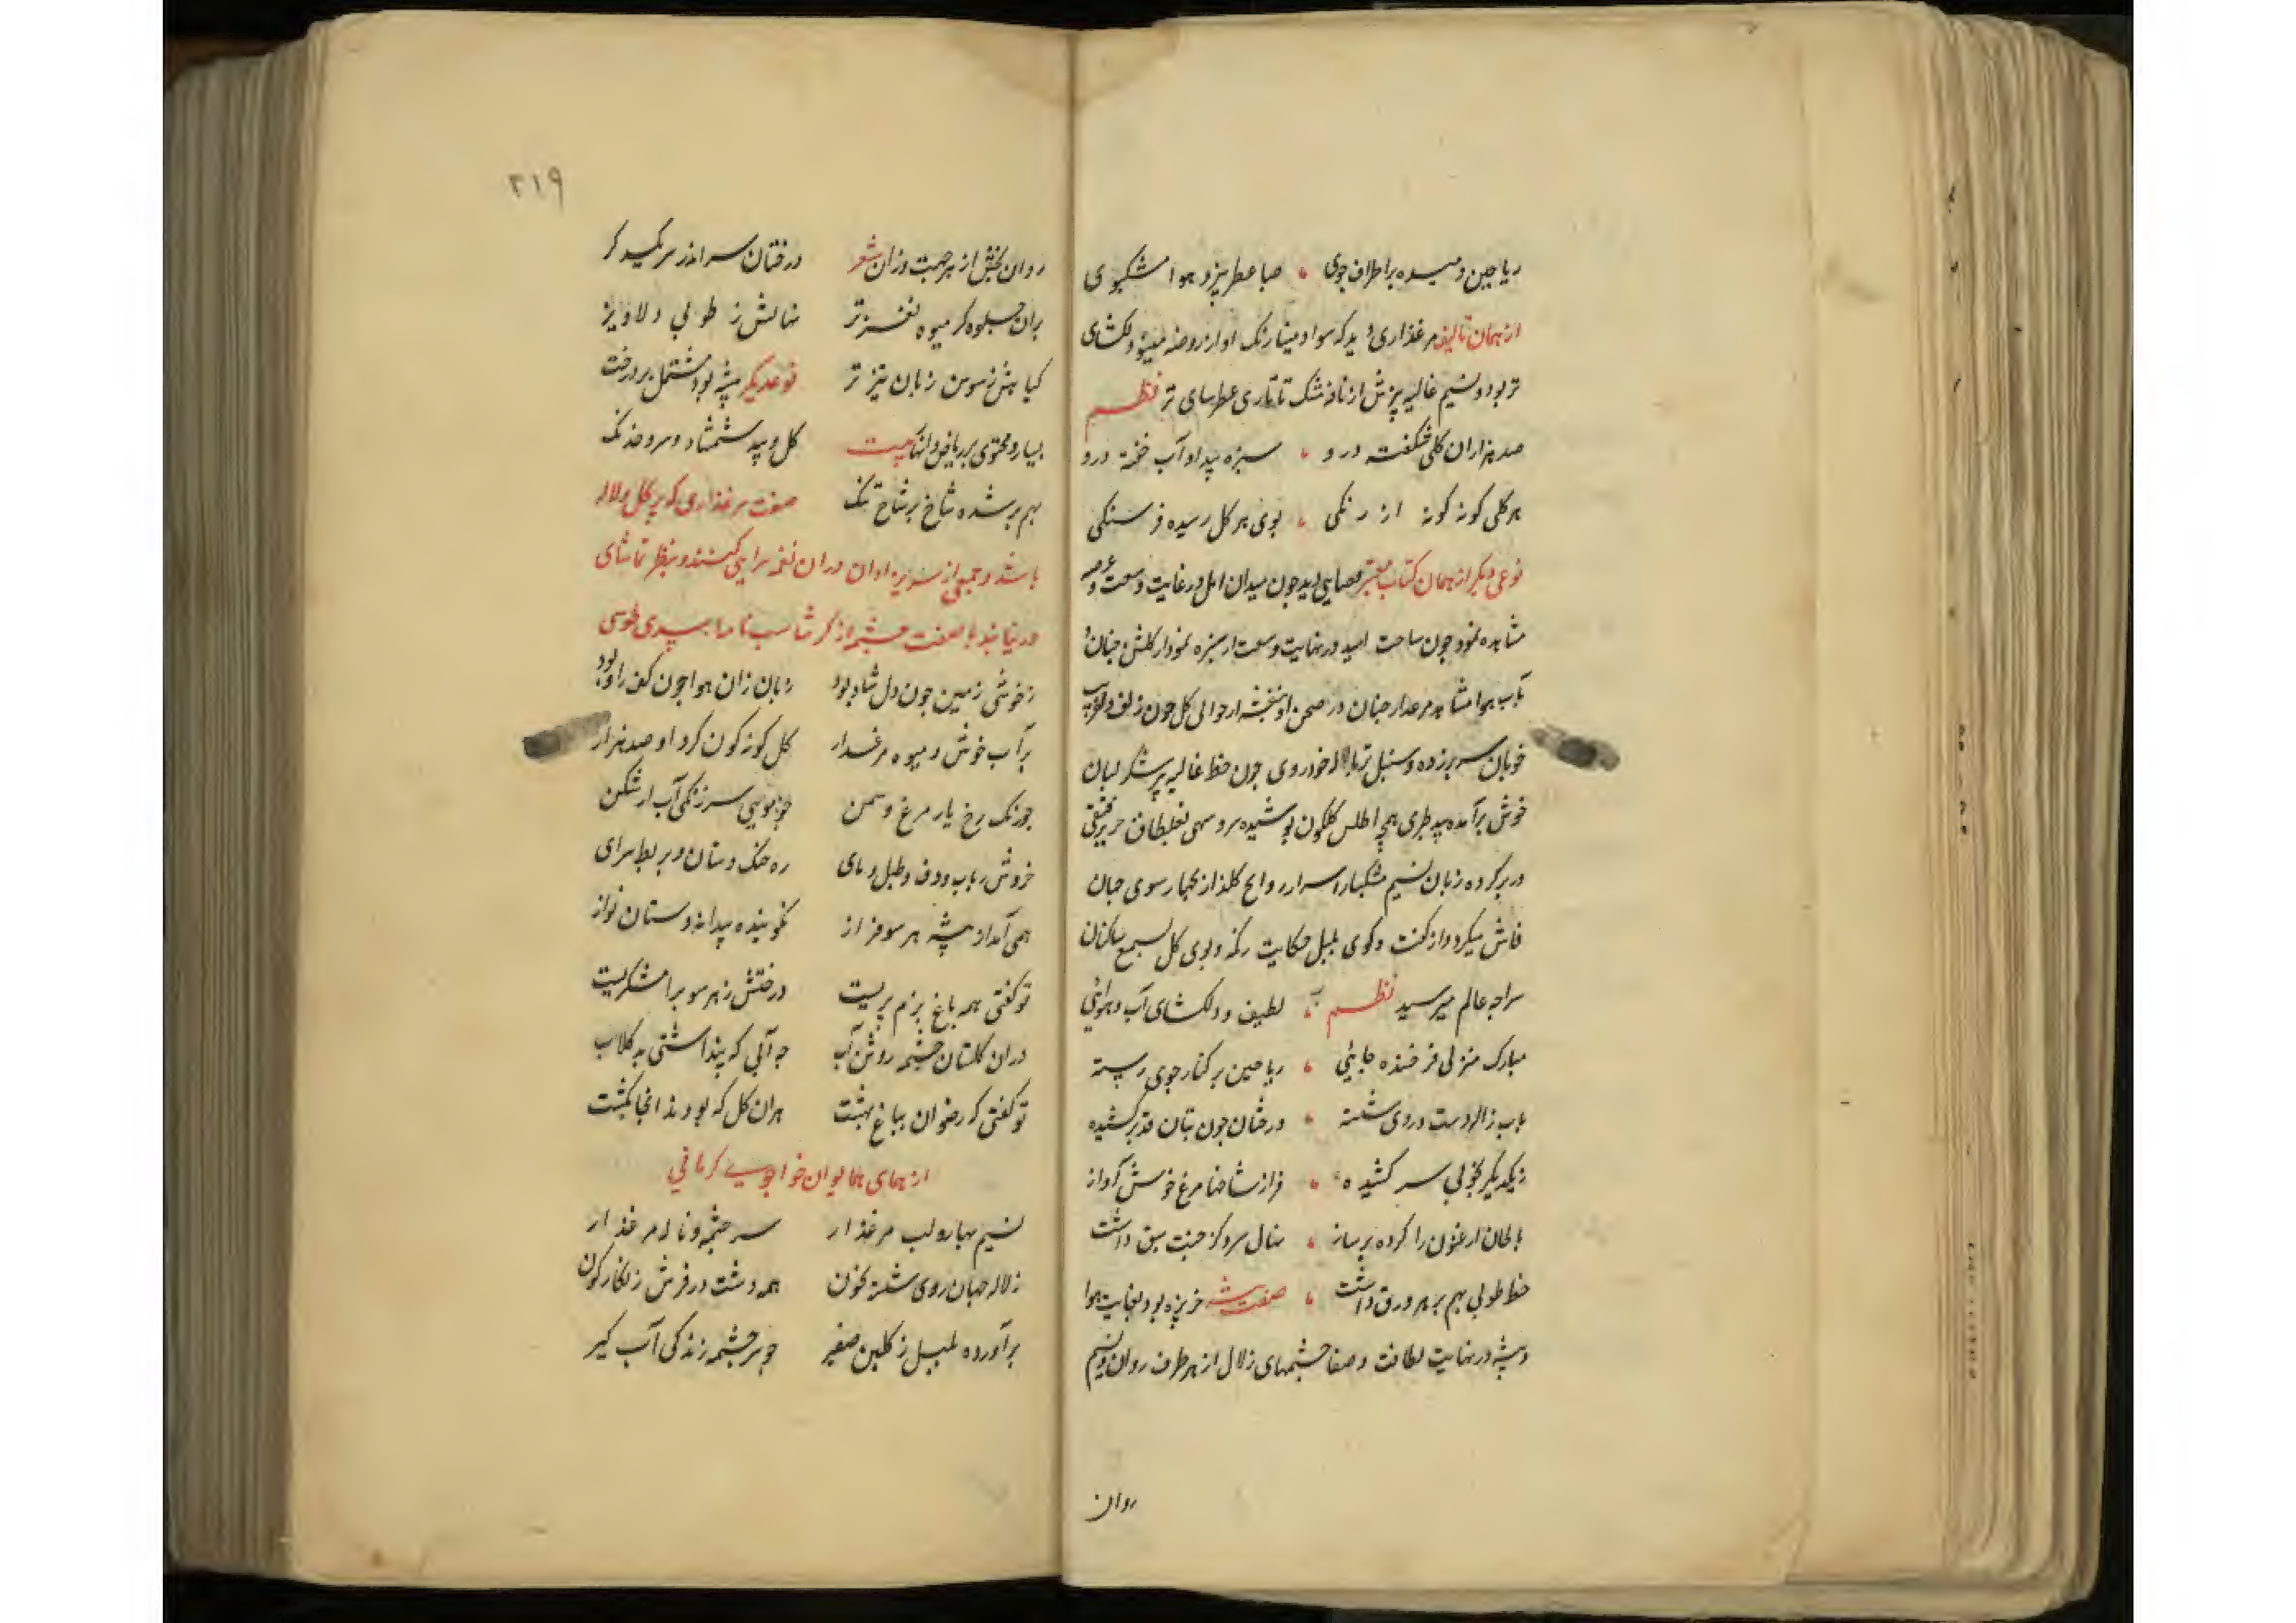 ریاحین دمیده بر اطراف جوی صبا عطر بیز و هوا مشکبوی
از همان تالیف مرغذاری دید که سواد مینا رنگ او از روضه مینو دلکشای
تر بود و نسیم غالیه بیزش از نافه مشک تاتاری عطرسای تر نظم
صد هزاران گل شکفته درو سبزه بیدار و آب خفته درو
هر گلی گونه گونه از رنگی بوی هر گل رسیده فرسنگی
نوعی دیگر از همان کتاب معتبر فضایی دید چون میدان امل در غایت وسعت و عرصه
مشاهده نمود چون ساحت امید در نهایت وسعت از سبزه نمودار گلشن جنان و
بآب هوا مشابه مرغدار جنان در صحن او بنفشه از حوالی گل چون زلف دلفریب
خوبان سر بر زده و سنبل تر با لاله خودروی چون خط غالیه بر شکر لبان
خوش برآمده بید طبری همچو اطلس گلگون پوشیده سرو سهی بغلطاق حریر فستقی
در بر کرده زبان نسیم مشکبار اسرار روایح گلذار بخهار سوی جهان
فاش میکرد و از گفت و گوی بلبل حکایت رنگ و بوی گل بسمع ساکنان
سراچه عالم میرسید نظم لطیف و دلکشای آب و هوائی
مبارک منزلی فرخنده جایی ریاحین بر کنار جوی رسته
بآب ژاله دست و روی شسته درختان چون بتان قد بر کشیده
ز یکدیگر بخوبی سر کشیده فراز شاخها مرغ خوش آواز
بالحان ارغنون را کرده بر ساز نهال سرو کز جنت سبق داشت
خط طوبی بهم بر هر ورق داشت صفت بیشه جزیره بود بغایت هوا
و بیشه در نهایت لطافت و صفا چشمهای زلال از هر طرف روان و نسیم
روان
۲۱۹
روان بخش از هر جهت وزان شعر درختان سر اندر سر یکدگر
بران جلوه گر میوه نغز تر نهالش ز طوبی دلاویز
گیاهش ز سوسن زبان تیز تر نوعدیگر بیشه بود مشتمل بر درخت
بسیار و محتوی بر ریاض دلها بیت گل و بید شمشاد و سرو خدنگ
بهم بر شده شاخ بر شاخ تنگ صفت مرغذاری که پر گل و لاله
باشد و جمعی از در ان نغمه سرایی کنند و بنظر تماشای
در نیابند با صفت چشمه از کرشاسب نامه اسدی طوسی
ز خوشی زمین چون دل شاد بود زبان زان هوا چون کف راد بود
پر آب خوش و میوه مرغدار گل گونه گون کرد او صد هزار
چو رنگ رخ یار مرغ و سمن چو موی سر زنگی آب از شکن
خروش رباب و دف و طبل و نای ره چنگ و دستان و بربط سرای
همی آمد از بیشه هر سو فراز نه گوینده پیدا نه دستان نواز
تو گفتی همه باغ بزم پریست درختش ز هر سو برامشگریست
در ان گلستان چشمه روشن آب چه آبی که پنداشتی به گلاب
تو گفتی که رضوان بباغ بهشت هران گل که بودند انجا بکشت
از همای همایون خواجوی کرمانی
نسیم بهار و لب مرغذار سر چشمه و ناله مرغ زار
ز لاله جهان روی شسته بخون همه دشت در فرش زنگارگون
برآورده بلبل ز گلبن صفیر چو سرچشمه زندگی آب گیر